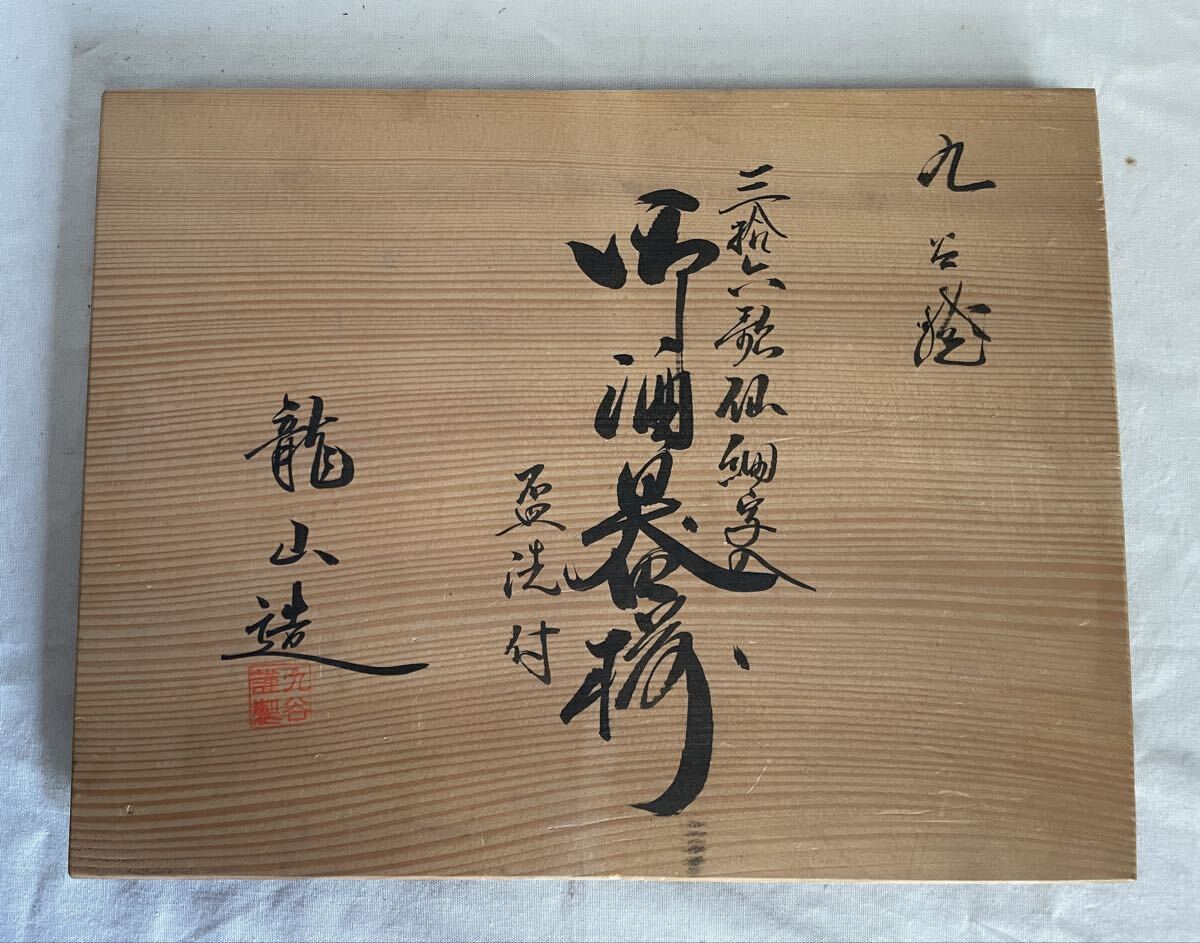 九谷焼
三拾六歌仙細字入
御酒器揃
盃洗付
龍山造
九谷
謹製